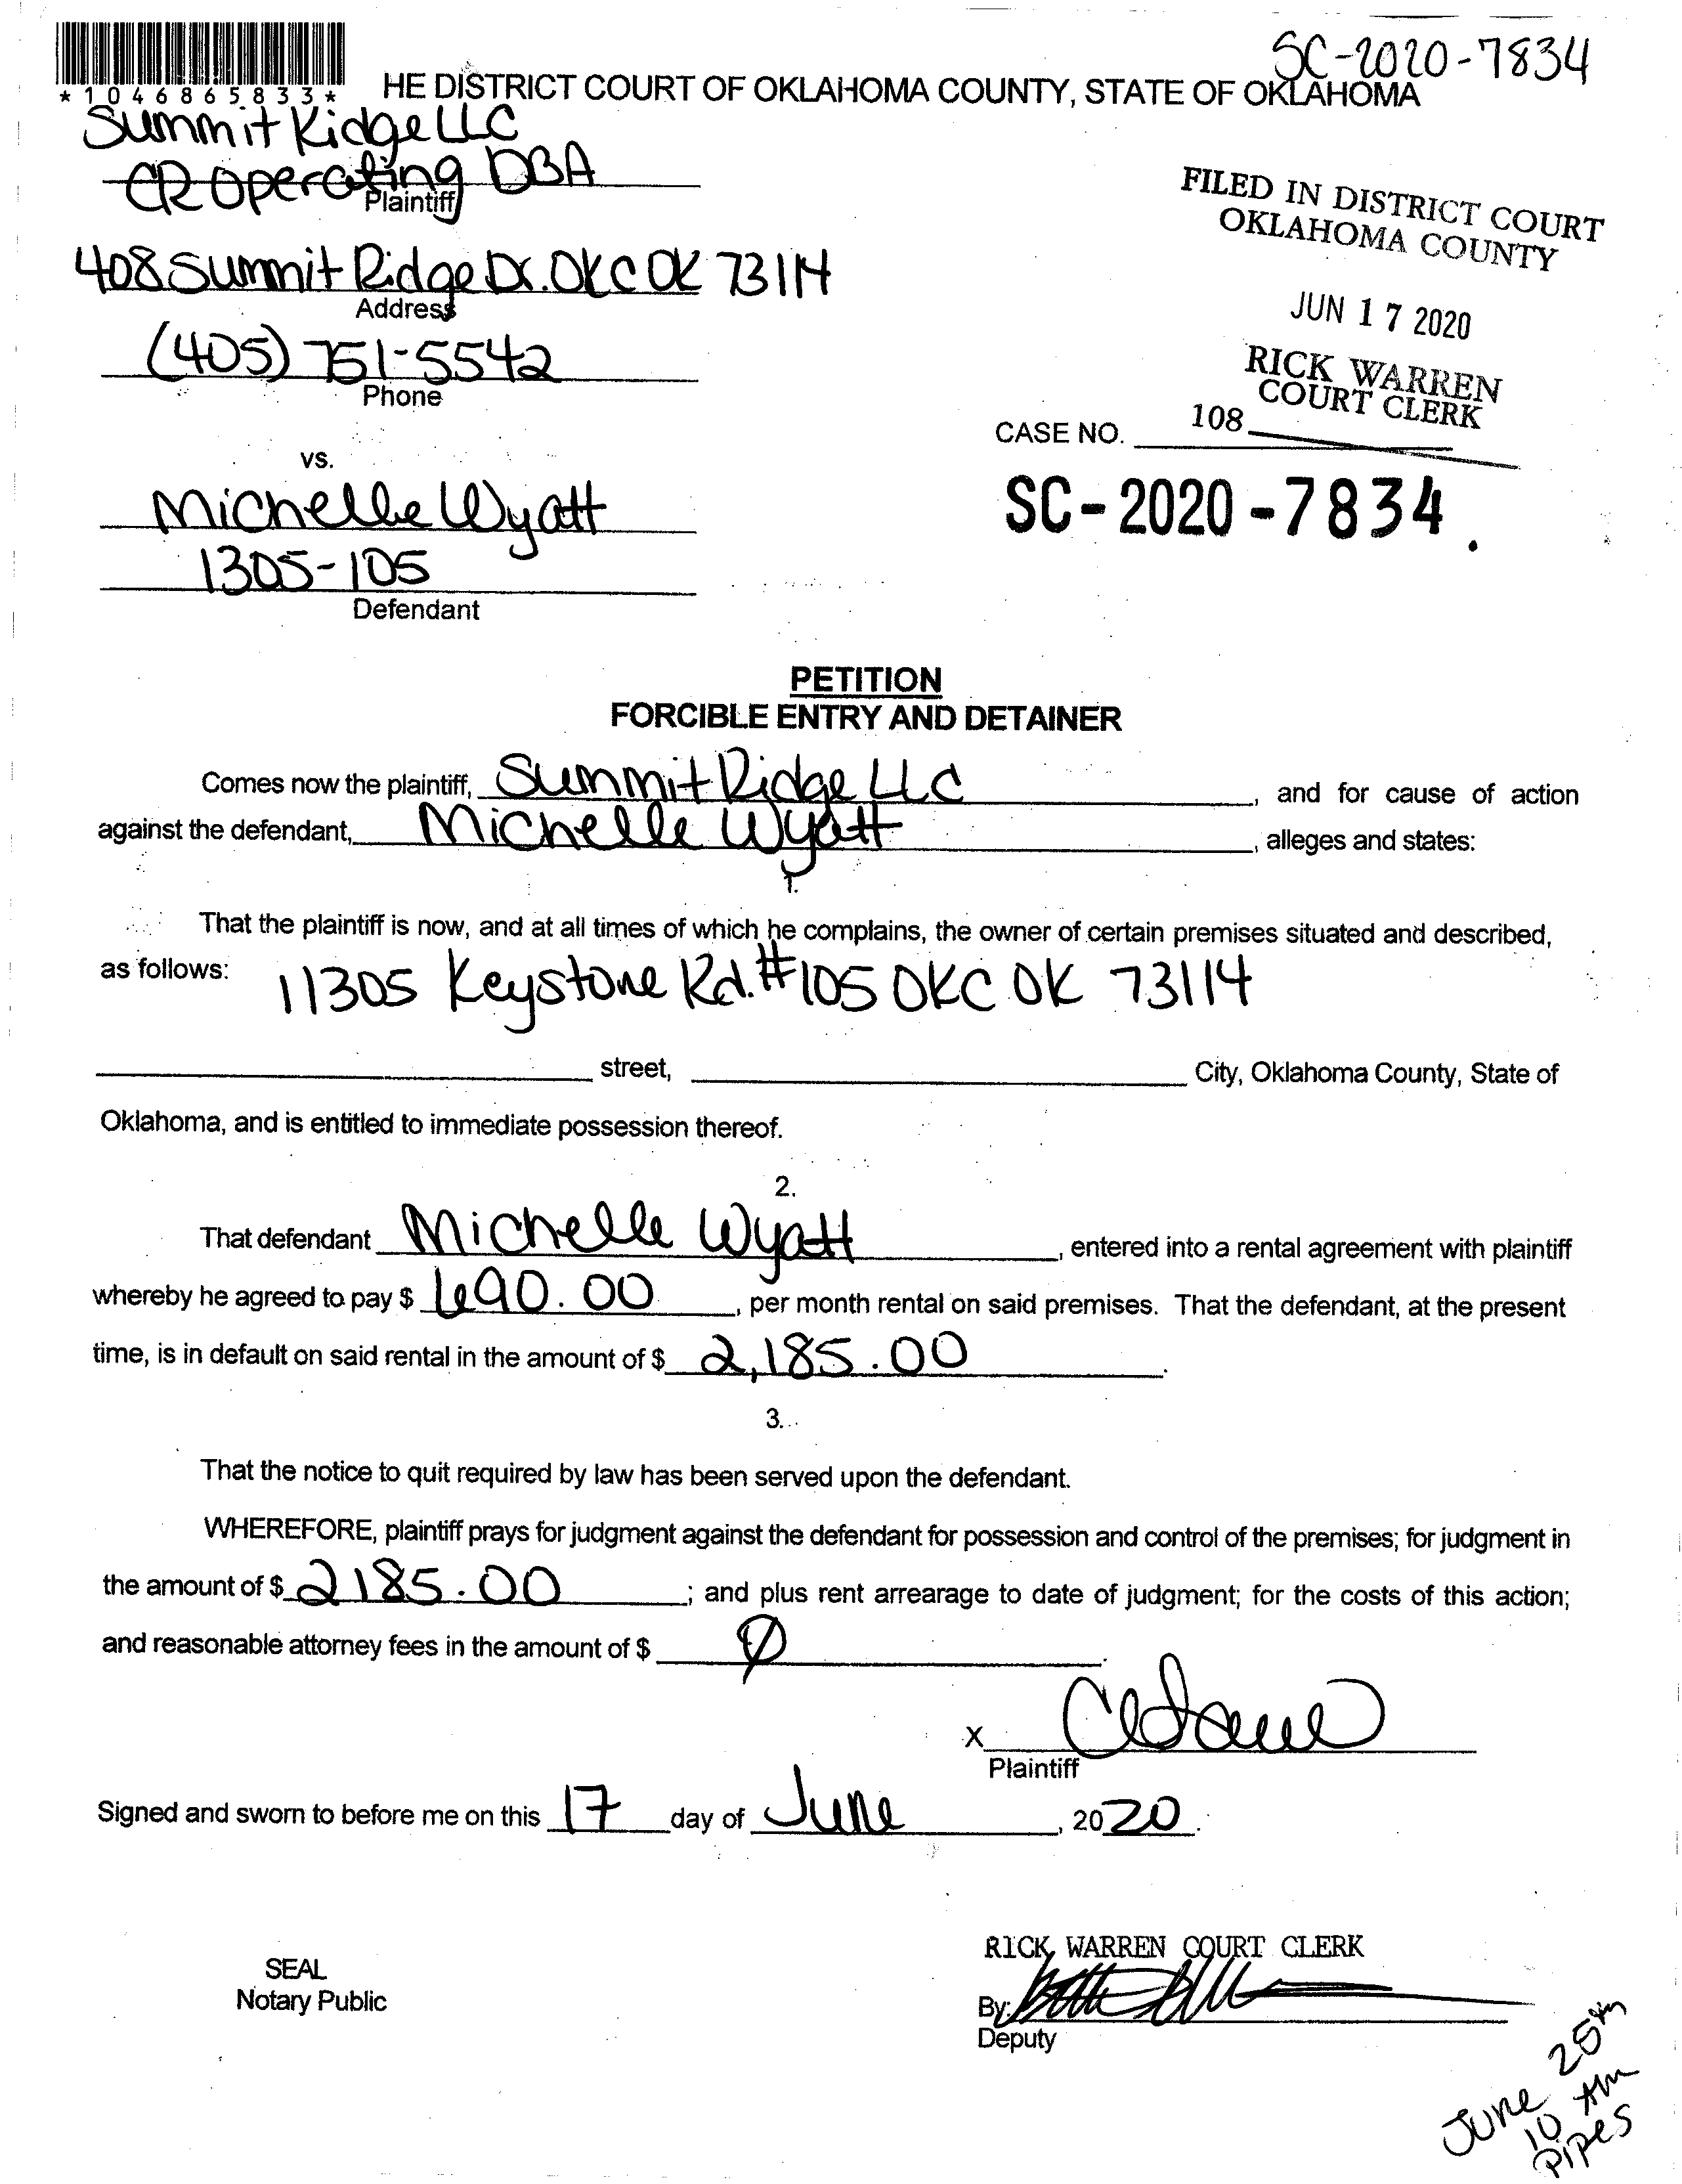 SC-2020-7834
*1046865833*
HE DISTRICT COURT OF OKLAHOMA COUNTY, STATE OF OKLAHOMA
Summit Ridge LLC
CR Operating DBA
Plaintiff
408 Summit Ridge Dr. OKC OK 73114
Address
(405) 751-5542
Phone
FILED IN DISTRICT COURT
OKLAHOMA COUNTY
JUN 17 2020
RICK WARREN
COURT CLERK
108
CASE NO.
vs.
SC-2020-7834.
Michelle Wyatt
1305-105
Defendant
PETITION
FORCIBLE ENTRY AND DETAINER
Comes now the plaintiff, Summit Ridge LLC, and for cause of action
against the defendant, Michelle Wyatt, alleges and states:
1.
That the plaintiff is now, and at all times of which he complains, the owner of certain premises situated and described,
as follows: 11305 Keystone Rd. #105 OKC OK 73114
street, City, Oklahoma County, State of
Oklahoma, and is entitled to immediate possession thereof.
2.
That defendant Michelle Wyatt, entered into a rental agreement with plaintiff
whereby he agreed to pay $ 690.00, per month rental on said premises. That the defendant, at the present
time, is in default on said rental in the amount of $ 2,185.00.
3.
That the notice to quit required by law has been served upon the defendant.
WHEREFORE, plaintiff prays for judgment against the defendant for possession and control of the premises; for judgment in
the amount of $ 2185.00; and plus rent arrearage to date of judgment; for the costs of this action;
and reasonable attorney fees in the amount of $ 0.
X
Plaintiff
Signed and sworn to before me on this 17 day of June, 2020.
SEAL
Notary Public
RICK WARREN COURT CLERK
By:
Deputy
June 25th
10 AM
Pipes